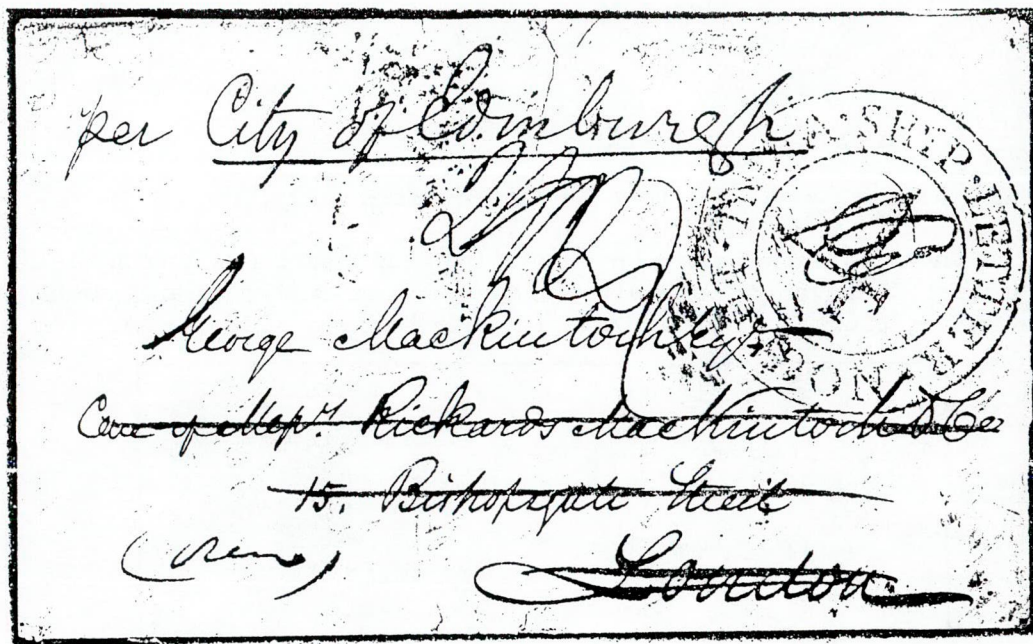 per City of Edinburgh
INDIA · SHIP · LETTER
George Mackintosh Esqr
Care of Messrs. Rickards Mackintosh & Co
15. Bishopsgate Street
London